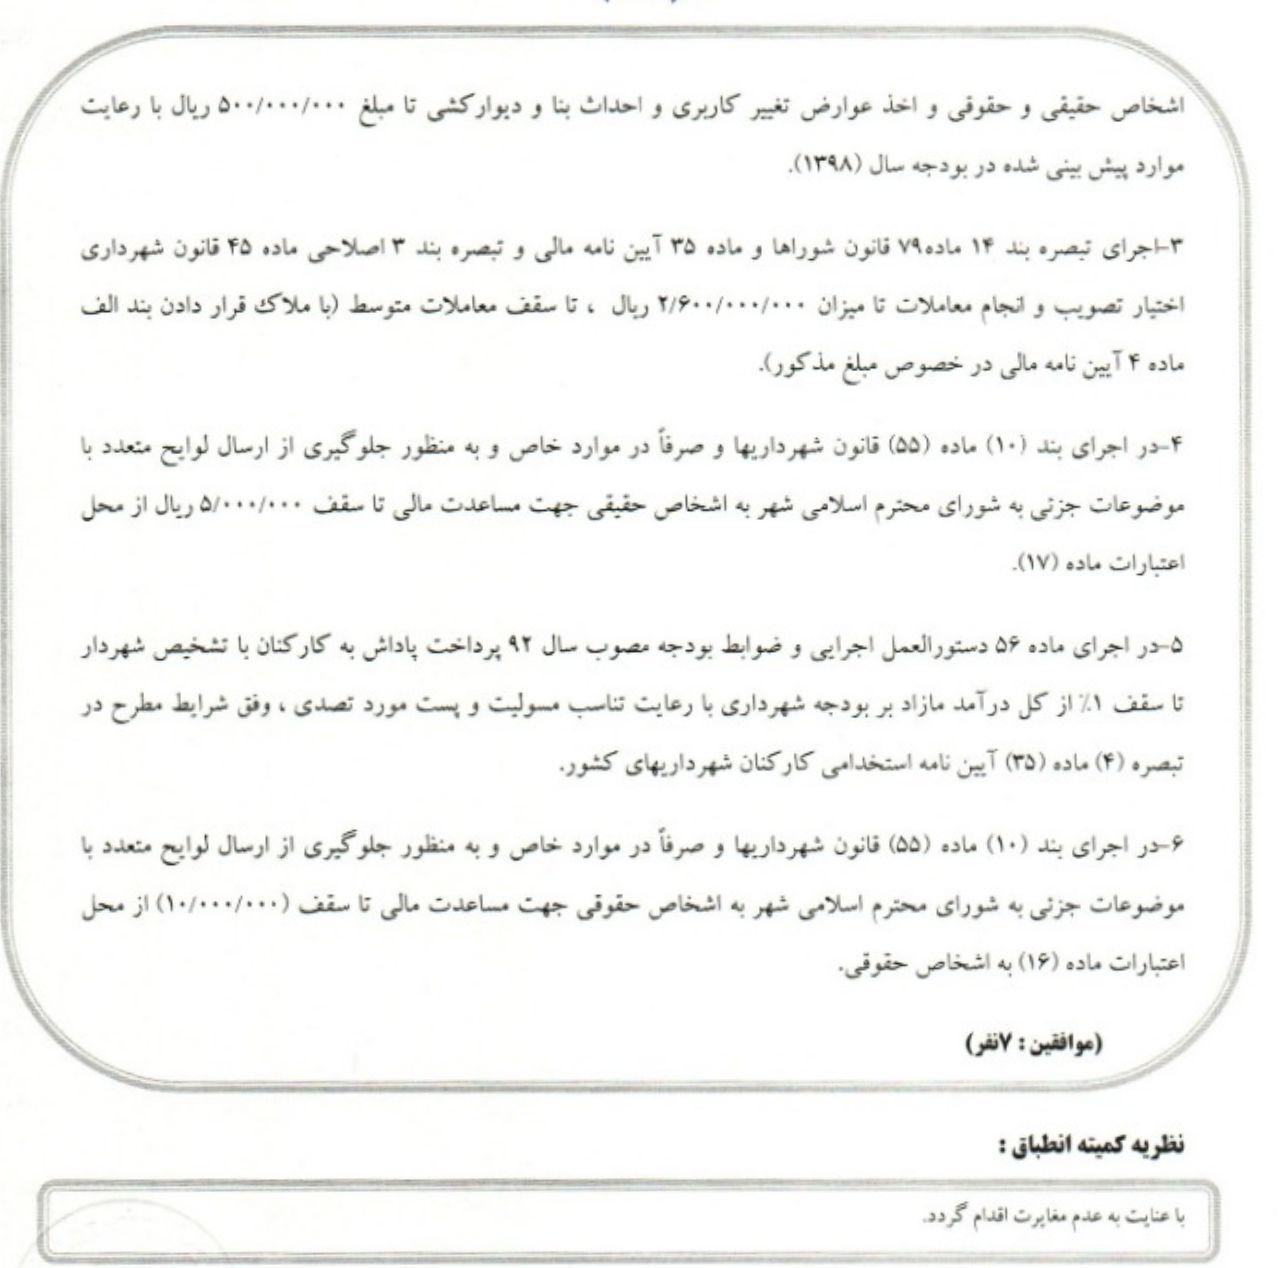 اشخاص حقیقی و حقوقی و اخذ عوارض تغییر کاربری و احداث بنا و دیوارکشی تا مبلغ ۵۰۰/۰۰۰/۰۰۰ ریال با رعایت
موارد پیش بینی شده در بودجه سال (۱۳۹۸).
۳-اجرای تبصره بند ۱۴ ماده۷۹ قانون شوراها و ماده ۳۵ آیین نامه مالی و تبصره بند ۳ اصلاحی ماده ۴۵ قانون شهرداری
اختیار تصویب و انجام معاملات تا میزان ۲/۶۰۰/۰۰۰/۰۰۰ ریال ، تا سقف معاملات متوسط (با ملاک قرار دادن بند الف
ماده ۴ آیین نامه مالی در خصوص مبلغ مذکور).
۴-در اجرای بند (۱۰) ماده (۵۵) قانون شهرداریها و صرفاً در موارد خاص و به منظور جلوگیری از ارسال لوایح متعدد با
موضوعات جزئی به شورای محترم اسلامی شهر به اشخاص حقیقی جهت مساعدت مالی تا سقف ۵/۰۰۰/۰۰۰ ریال از محل
اعتبارات ماده (۱۷).
۵-در اجرای ماده ۵۶ دستورالعمل اجرایی و ضوابط بودجه مصوب سال ۹۲ پرداخت پاداش به کارکنان با تشخیص شهردار
تا سقف ۱٪ از کل درآمد مازاد بر بودجه شهرداری با رعایت تناسب مسولیت و پست مورد تصدی ، وفق شرایط مطرح در
تبصره (۴) ماده (۳۵) آیین نامه استخدامی کارکنان شهرداریهای کشور.
۶-در اجرای بند (۱۰) ماده (۵۵) قانون شهرداریها و صرفاً در موارد خاص و به منظور جلوگیری از ارسال لوایح متعدد با
موضوعات جزئی به شورای محترم اسلامی شهر به اشخاص حقوقی جهت مساعدت مالی تا سقف (۱۰/۰۰۰/۰۰۰) از محل
اعتبارات ماده (۱۶) به اشخاص حقوقی.
(موافقین : ۷نفر)
نظریه کمیته انطباق :
با عنایت به عدم مغایرت اقدام گردد.